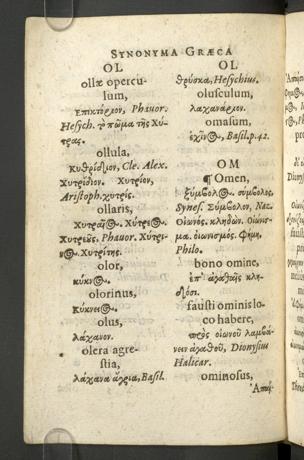 SYNONYMA GRÆCA
OL
ollæ opercu-
lum,
Ἐπικτόριον, Phavor.
Hesych. τὸ πῶμα τῆς Χύ-
τρας.
ollula,
Κυθρίδιον, Cle. Alex.
Χυτρίδιον. Χυτρίον,
Aristoph. χυτρίς.
ollaris,
Χυτρεὺς. Phavor. Χύτρι-
Χυτρίτης.
olor,
κύκνος.
olorinus,
Κύκνειος.
olus,
λάχανον.
olera agre-
stia,
λάχανα ἄγρια, Basil.
OL
θρύσκα, Hesychius.
olusculum,
λαχανάριον.
omasum,
ἐχῖνος, Basil. p. 42.
OM
¶ Omen,
ξύμβολος. σύμβολος,
Synes. Σύμβολον, Naz.
Οἰωνός. κληδών. Οἰώνισ-
μα. οἰωνισμός. Φήμη,
Philo.
bono omine,
ἐπ' ἀγαθαῖς κλη-
δόσι.
fausti ominis lo-
co habere,
πρὸς οἰωνοῦ λαμβά-
νειν ἀγαθοῦ, Dionysius
Halicar.
ominosus,